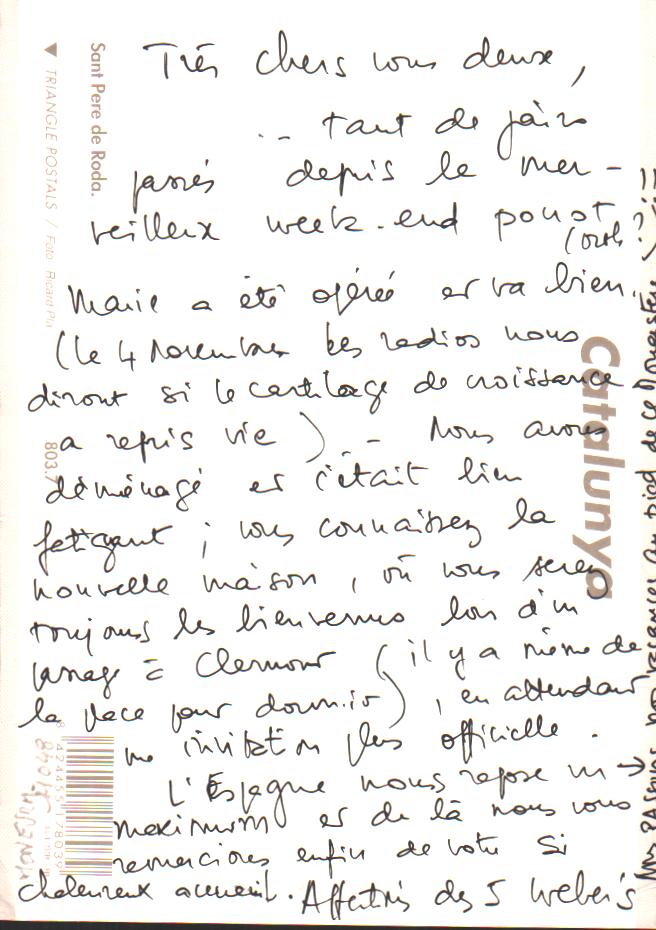 Très chers vous deux,
... tant de jours
passés depuis le mer-
veilleux week-end
(orth ?)
Marie a été opérée et va bien.
(le 4 Novembre les radios nous
diront si le cartilage de croissance
a repris vie). - Nous avons
déménagé et c'était bien
fatigant ; vous connaissez la
nouvelle maison, où vous serez
toujours les bienvenus lors d'un
passage à Clermont (il y a même de
la place pour dormir), en attendant
une invitation plus officielle.
L'Espagne nous repose un
maximum et de là nous vous
remercions enfin de votre si
chaleureux accueil. Affectueusement des 5 Weber's
→ Nous passons nos vacances au pied de ce
Sant Pere de Roda.
▼ TRIANGLE POSTALS / Foto Ricard Pla
803.7
Catalunya
8 424455 178039